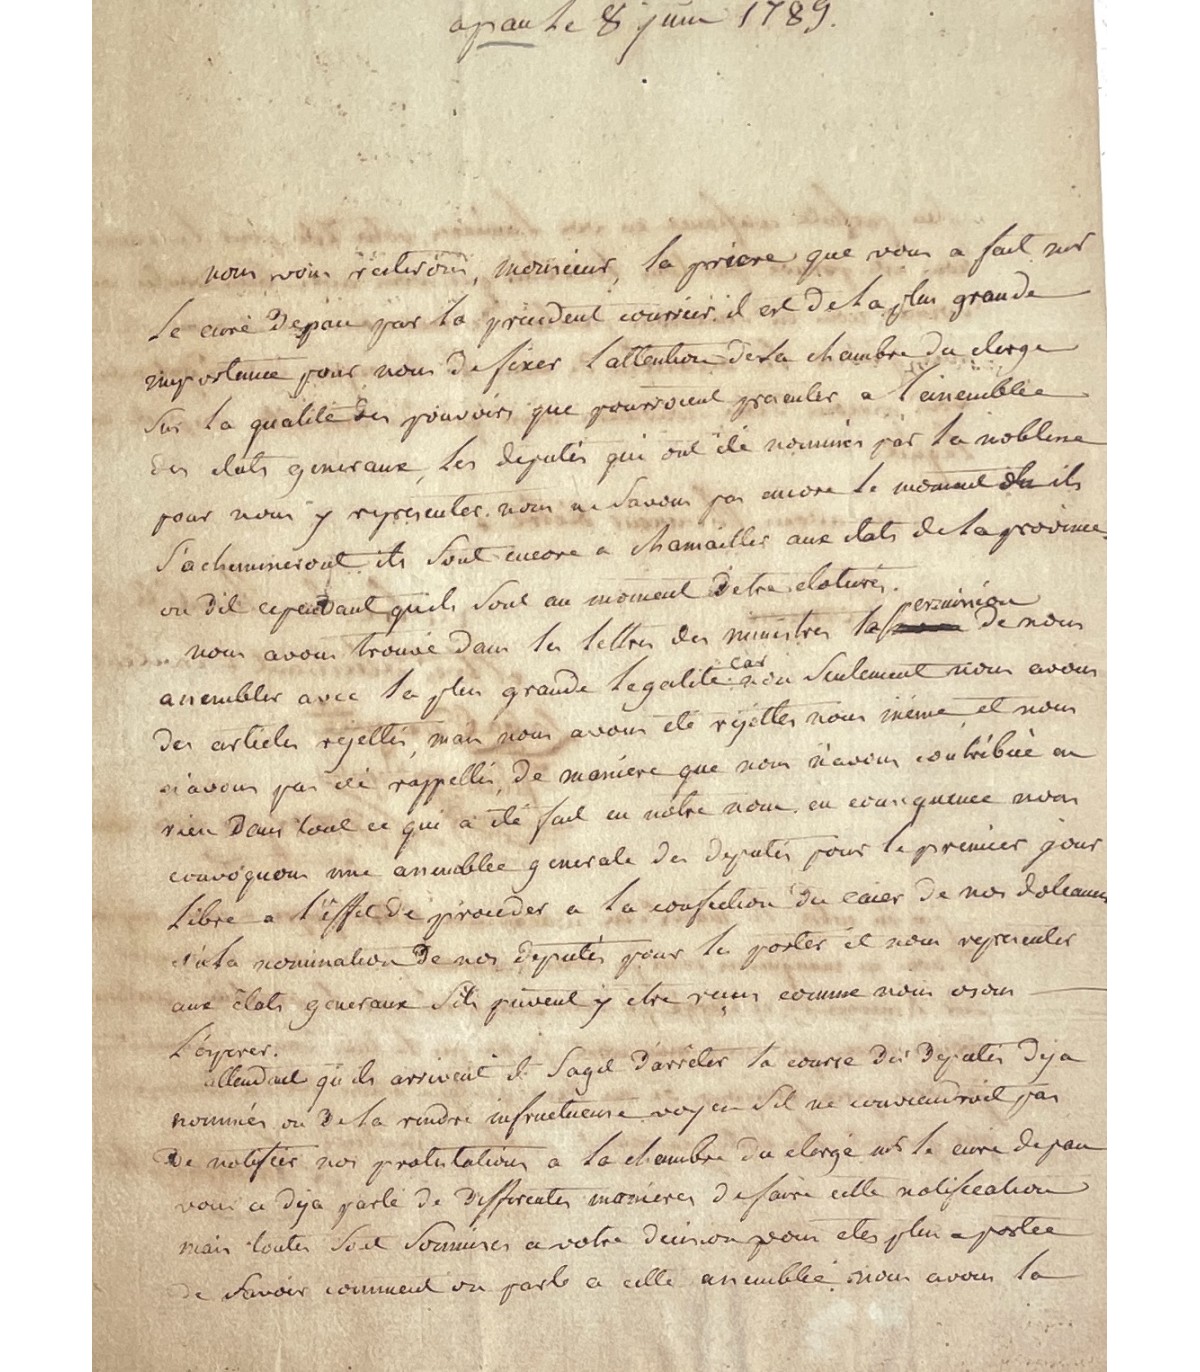 a pau le 8 juin 1789.
nous vous reiterons, monsieur, la priere que vous a fait mr
le curé depau par la précédent courrier. il est de la plus grande
importance pour nous de fixer l'attention de la chambre du clergé
sur la qualité des pouvoirs que pourroient presenter a l'assemblée
des etats generaux, les deputés qui ont été nommés par la noblesse
pour nous y representer. nous ne savons pas encore le moment ou ils
s'achemineront. ils sont encore a chamailler aux etats de la province
on dit cependant qu'ils sont au moment d'etre cloturés.
nous avons trouvé dans les lettres des ministres la permission de nous
assembler avec la plus grande legalité. car non seulement nous avons
des articles rejettés, mais nous avons été rejettés nous même, et nous
n'avons pas été rappellés, de maniere que nous n'avons contribué en
rien dans tout ce qui a été fait en notre nom. en consequence nous
convoquons une assemblée generale des deputés pour le premier jour
libre a l'effet de proceder a la confection du caier de nos doleances
et a la nomination de nos deputés pour les porter et nous representer
aux états generaux s'ils peuvent y etre reçus comme nous osons
l'esperer.
attendant qu'ils arrivent il s'agit d'arréter la course des deputés deja
nommés ou de la rendre infructueuse voyes s'il ne conviendroit pas
de notifier nos protestations a la chambre du clergé mr le curé depau
vous a deja parlé de differentes manieres de faire cette notification
mais toutes sont soumises a votre decision vous etes plus a portée
de savoir comment on parle a cette assemblée. nous avons la